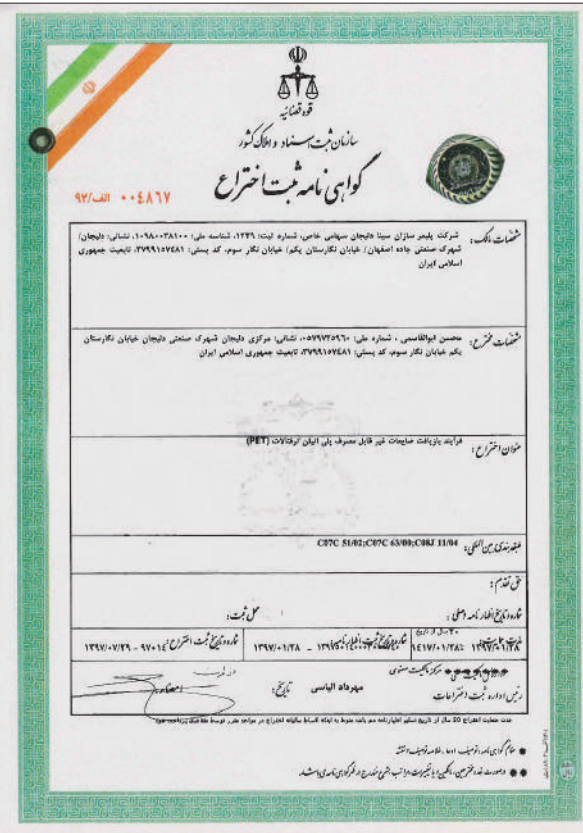 قوه قضائیه
سازمان ثبت اسناد و املاک کشور
گواهی نامه ثبت اختراع
۰۰۴۸۱۷ الف/۹۲
مشخصات مالک: شرکت پلیمر سازان سینا دلیجان سهامی خاص، شماره ثبت: ۱۲۳۹، شناسه ملی: ۱۰۹۸۰۰۳۸۱۰۰، نشانی: دلیجان/
شهرک صنعتی جاده اصفهان/ خیابان نگارستان یکم/ خیابان نگار سوم، کد پستی: ۳۷۹۹۱۵۷۴۸۱، تابعیت جمهوری
اسلامی ایران
مشخصات مخترع: محسن ابوالقاسمی ، شماره ملی: ۰۵۷۹۷۲۵۹۶۰، نشانی: مرکزی دلیجان شهرک صنعتی دلیجان خیابان نگارستان
یکم خیابان نگار سوم، کد پستی: ۳۷۹۹۱۵۷۴۸۱، تابعیت جمهوری اسلامی ایران
عنوان اختراع: فرآیند بازیافت ضایعات غیر قابل مصرف پلی اتیلن ترفتالات (PET)
طبقه بندی بین المللی: C07C 51/02;C07C 63/00;C08J 11/04
حق تقدم:
شماره و تاریخ اظهار نامه اصلی: محل ثبت:
۲۰ سال از تاریخ
مدت حمایت: ۱۳۹۷/۰۱/۲۸ تا ۱۴۱۷/۰۱/۲۸ شماره و تاریخ ثبت اظهارنامه: ۱۳۹۷/۰۱/۲۸ شماره و تاریخ ثبت اختراع: ۹۷۰۱۴ - ۱۳۹۷/۰۷/۲۹
مرکز مالکیت معنوی
رئیس اداره ثبت اختراعات مهرداد الیاسی تاریخ: امضاء:
مدت حمایت اختراع 20 سال از تاریخ تسلیم اظهارنامه می باشد منوط به اینکه اقساط سالیانه اختراع در مواعد مقرر توسط
ضمائم گواهی نامه: توصیف، ادعا، خلاصه توصیف، نقشه